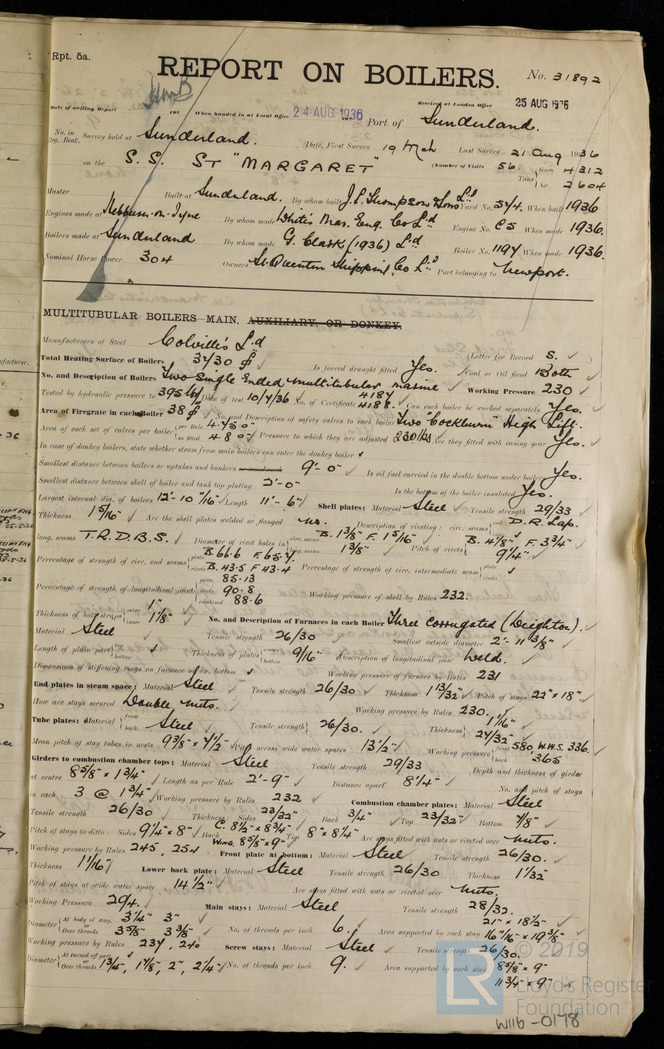 Rpt. 5a.
REPORT ON BOILERS.
No. 31892
Date of writing Report When handed in at Local Office 24 AUG 1936 Port of Sunderland.
Received at London Office 25 AUG 1936
No. in Reg. Book. Survey held at Sunderland. Date, First Survey 19 Mch Last Survey 21 Aug 1936
on the S.S. ST "MARGARET" (Number of Visits 56) Tons Gross 4312 Net 2604
Master Built at Sunderland. By whom built J.L. Thompson & Sons Ld. Yard No. 574. When built 1936
Engines made at Hebburn-on-Tyne By whom made White's Mar. Eng. Co Ld Engine No. C5 When made 1936.
Boilers made at Sunderland By whom made G. Clark (1936) Ld Boiler No. 1197 When made 1936.
Nominal Horse Power 304 Owners St. Quentin Shipping Co Ld. Port belonging to Newport.
MULTITUBULAR BOILERS MAIN, AUXILIARY, OR DONKEY.
Manufacturers of Steel Colville's Ld (Letter for Record S.)
Total Heating Surface of Boilers Is forced draught fitted Yes. Coal or Oil fired Both
No. and Description of Boilers Two Single Ended multitubular marine Working Pressure 230
Tested by hydraulic pressure to 395 Date of test 10/7/36 No. of Certificate 4187 4188. Can each boiler be worked separately Yes.
Area of Firegrate in each Boiler 38 No. and Description of safety valves to each boiler Two "Cockburn" High Lift.
Area of each set of valves per boiler per Rule as fitted Pressure to which they are adjusted 230 lbs Are they fitted with easing gear Yes.
In case of donkey boilers, state whether steam from main boilers can enter the donkey boiler
Smallest distance between boilers or uptakes and bunkers 9'-0" Is oil fuel carried in the double bottom under boilers Yes.
Smallest distance between shell of boiler and tank top plating 2'-0" Is the bottom of the boiler insulated Yes.
Largest internal dia. of boilers 12'-10 7/16" Length 11'-6" Shell plates: Material Steel Tensile strength 29/33
Thickness 1 5/16" Are the shell plates welded or flanged no. Description of riveting: circ. seams end D.R. Lap.
long. seams T.R.D.B.S. Diameter of rivet holes in circ. seams B. 1 3/8" F. 1 5/16" long. seams 1 3/8" Pitch of rivets B. 4 1/8" F. 3 3/4" 9 1/4"
Percentage of strength of circ. end seams plate B. 66.6 F. 65.4. rivets B. 43.5 F. 43.4 Percentage of strength of circ. intermediate seam plate rivets
Percentage of strength of longitudinal joint plate 85.13 rivets 90.8 combined 88.6 Working pressure of shell by Rules 232.
Thickness of butt straps outer 1" inner 1 1/8" No. and Description of Furnaces in each Boiler Three corrugated (Deighton).
Material Steel Tensile strength 26/30 Smallest outside diameter 2'-11 3/8"
Length of plain part top bottom Thickness of plates crown bottom 9/16" Description of longitudinal joint Weld.
Dimensions of stiffening rings on furnace or c.c. bottom Working pressure of furnace by Rules 231
End plates in steam space: Material Steel Tensile strength 26/30 Thickness 1 13/32" Pitch of stays 22" x 18"
How are stays secured Double nuts. Working pressure by Rules 230.
Tube plates: Material front back Steel Tensile strength 26/30. Thickness 1 1/16" 24/32"
Mean pitch of stay tubes in nests 9 3/8" x 7 1/2" Pitch across wide water spaces 13 1/2" Working pressure front 580 W.W.S. 336. back 365
Girders to combustion chamber tops: Material Steel Tensile strength 29/33 Depth and thickness of girder
at centre 8 5/8" x 1 3/4" Length as per Rule 2'-9" Distance apart 8 1/4" No. and pitch of stays
in each 3 @ 1 3/4" Working pressure by Rules 232 Combustion chamber plates: Material Steel
Tensile strength 26/30 Thickness: Sides 23/32" Back 3/4" Top 23/32" Bottom 7/8"
Pitch of stays to ditto: Sides 9 1/4" x 8" Back C. 8 1/2" x 8 3/4" Wing. 8 5/8" x 9" Top 8" x 8 1/4" Are stays fitted with nuts or riveted over Nuts.
Working pressure by Rules 245, 254 Front plate at bottom: Material Steel Tensile strength 26/30.
Thickness 1 1/16" Lower back plate: Material Steel Tensile strength 26/30 Thickness 1/32"
Pitch of stays at wide water space 14 1/2" Are stays fitted with nuts or riveted over Nuts.
Working Pressure 294. Main stays: Material Steel Tensile strength 28/32.
Diameter At body of stay, 3 1/4" 3" Over threads 3 5/8" 3 3/8" No. of threads per inch 6. Area supported by each stay 21" x 18 1/2" 16 7/16" x 19 3/8"
Working pressure by Rules 237, 240 Screw stays: Material Steel Tensile strength 26/30.
Diameter At turned off part, Over threads 1 3/4", 1 7/8", 2", 2 1/4" No. of threads per inch 9. Area supported by each stay 8 5/8" x 9" 11 3/4" x 9"
© 2019
LR
Lloyd's Register
Foundation
W116-0178